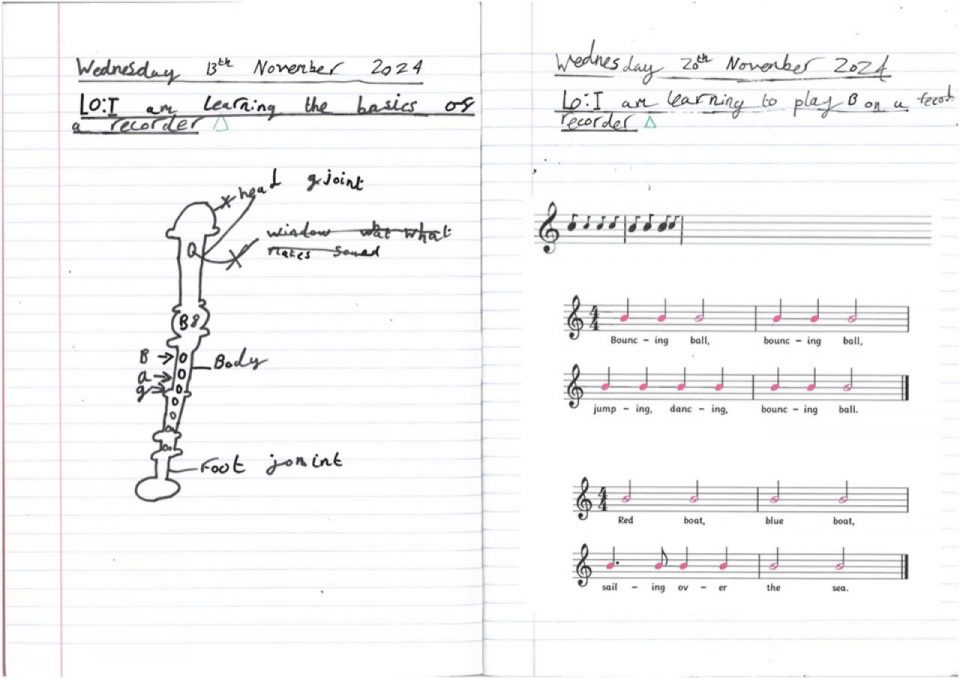 Wednesday 13th November 2024
LO: I am learning the basics of
a recorder
head joint
window wat what
makes sound
B
B
a
g
Body
Foot jomint
Wednesday 20th November 2024
LO: I am learning to play B on a recod
recorder
4
4
Bounc – ing ball, bounc – ing ball,
jump – ing, danc – ing, bounc – ing ball.
4
4
Red boat, blue boat,
sail – ing ov – er the sea.